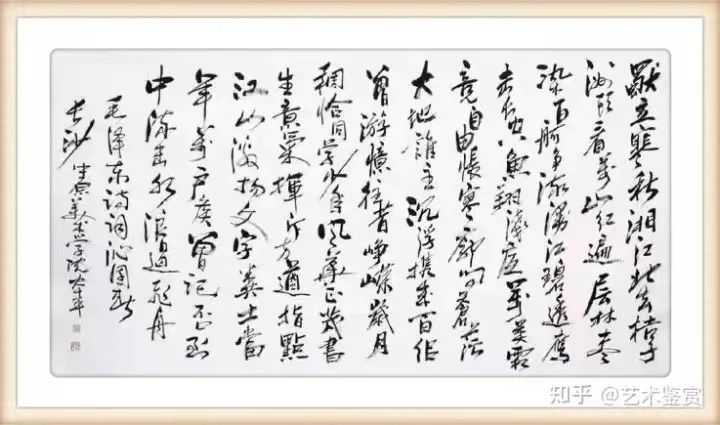 獨立寒秋湘江北去橘子
洲頭看萬山紅遍层林盡
染百舸争流漫江碧透鹰
击长空鱼翔浅底萬类霜
竞自由悵寥廓问蒼茫
大地誰主沉浮携来百侣
曾游憶往昔峥嵘歲月
稠恰同学少年风華正茂書
生意氣揮斥方遒指點
江山激扬文字粪土當
年萬户侯曾记否到
中流击水浪遏飛舟
毛泽东诗词沁園春
长沙 美术学院
知乎 @艺术鉴赏